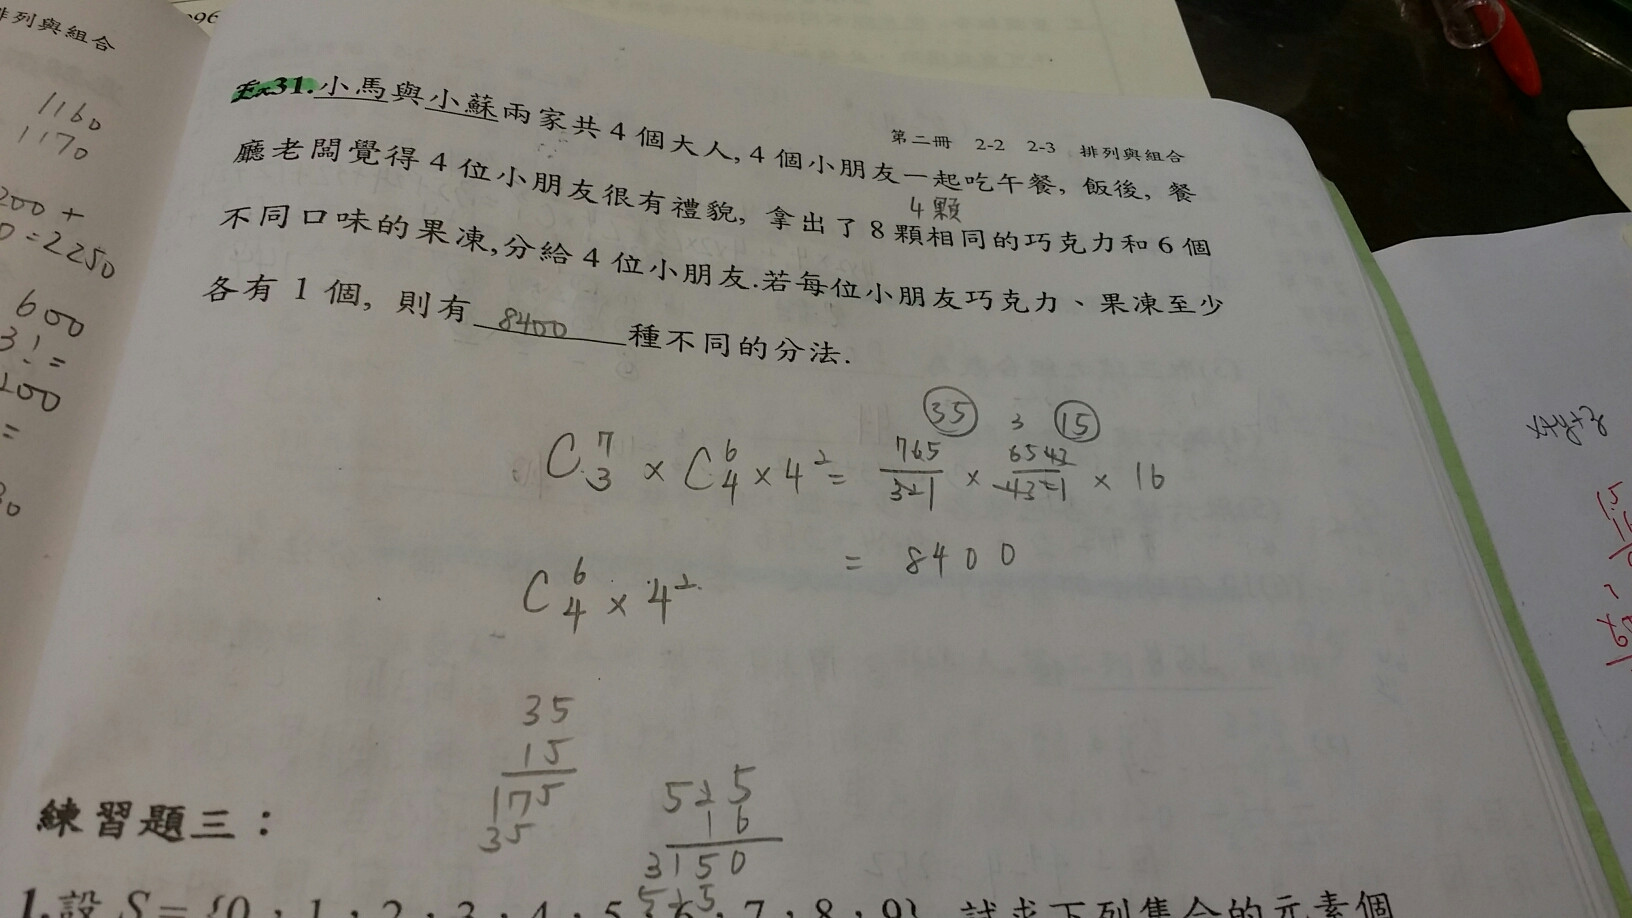 排列與組合
1160
1170
200 +
0=2250
600
3! =
200
=
Ex31.小馬與小蘇兩家共4個大人,4個小朋友一起吃午餐, 飯後, 餐
第二冊 2-2 2-3 排列與組合
廳老闆覺得4位小朋友很有禮貌, 拿出了8顆相同的巧克力和6個
4顆
不同口味的果凍,分給4位小朋友.若每位小朋友巧克力、果凍至少
各有1個, 則有 8400 種不同的分法.
35 3 15
C 7 3 × C 6 4 × 4² = 765/321 × 6543/4321 × 16
= 8400
C 6 4 × 4²
35
15
175
35
525
16
3150
525
x+y+z
15
練習題三：
1.設 S={0,1,2,3,4,5,6,7,8,9},試求下列集合的元素個